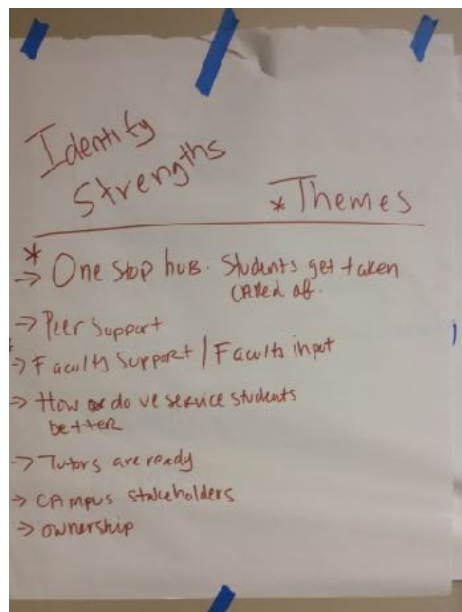 Identify
Strengths
* Themes
*
→ One stop hub. Students get taken
cared of.
→ Peer Support
* → Faculty Support / Faculty input
→ How do we service students
better
→ Tutors are ready
→ CAmpus stakeholders
→ ownership